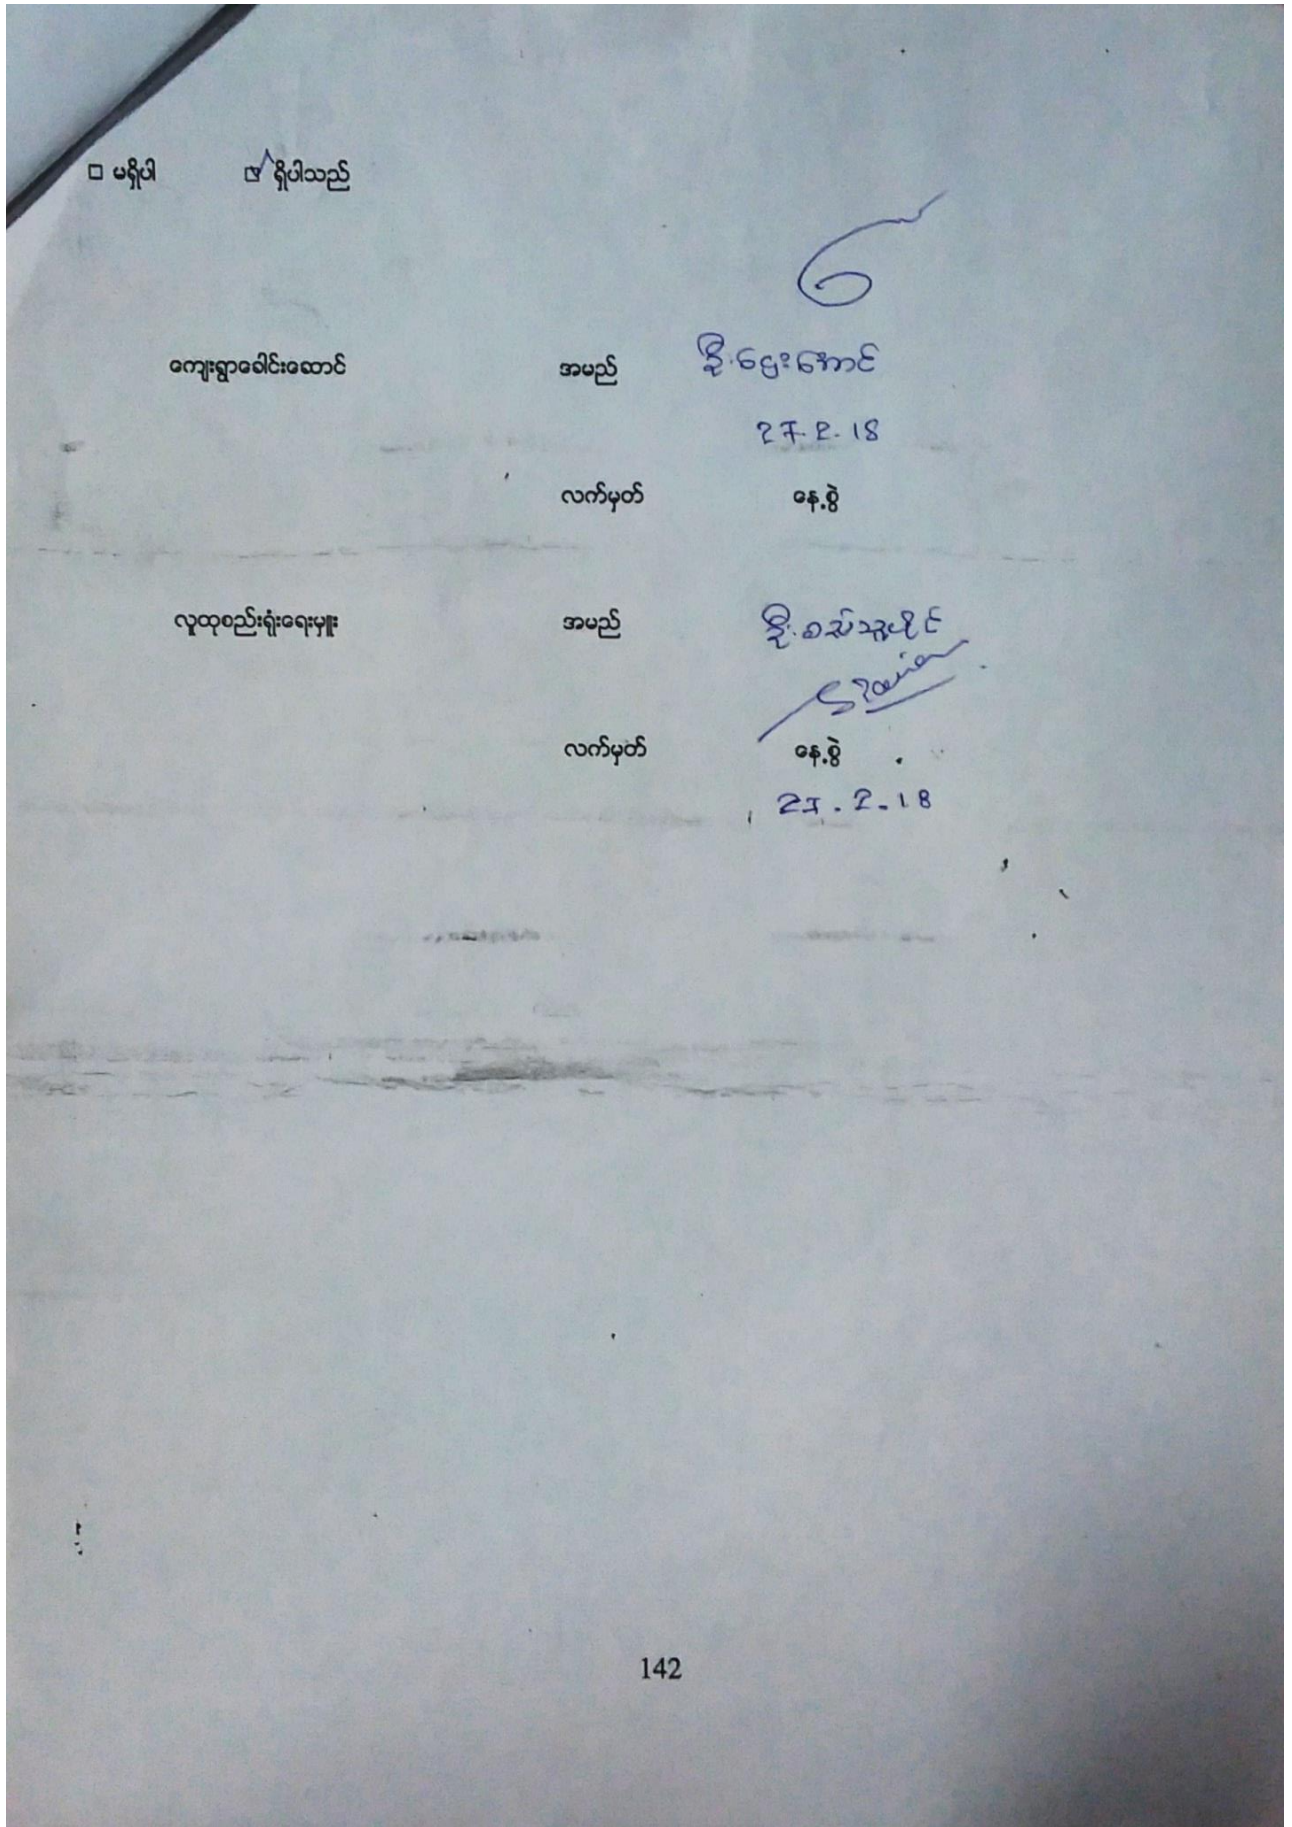 □ မရှိပါ ☑ ရှိပါသည်
ကျေးရွာခေါင်းဆောင် အမည် ဦးဌေးအောင်
27.2.18
လက်မှတ် နေ့စွဲ
လူထုစည်းရုံးရေးမှူး အမည် ဦး
လက်မှတ် နေ့စွဲ
27.2.18
142